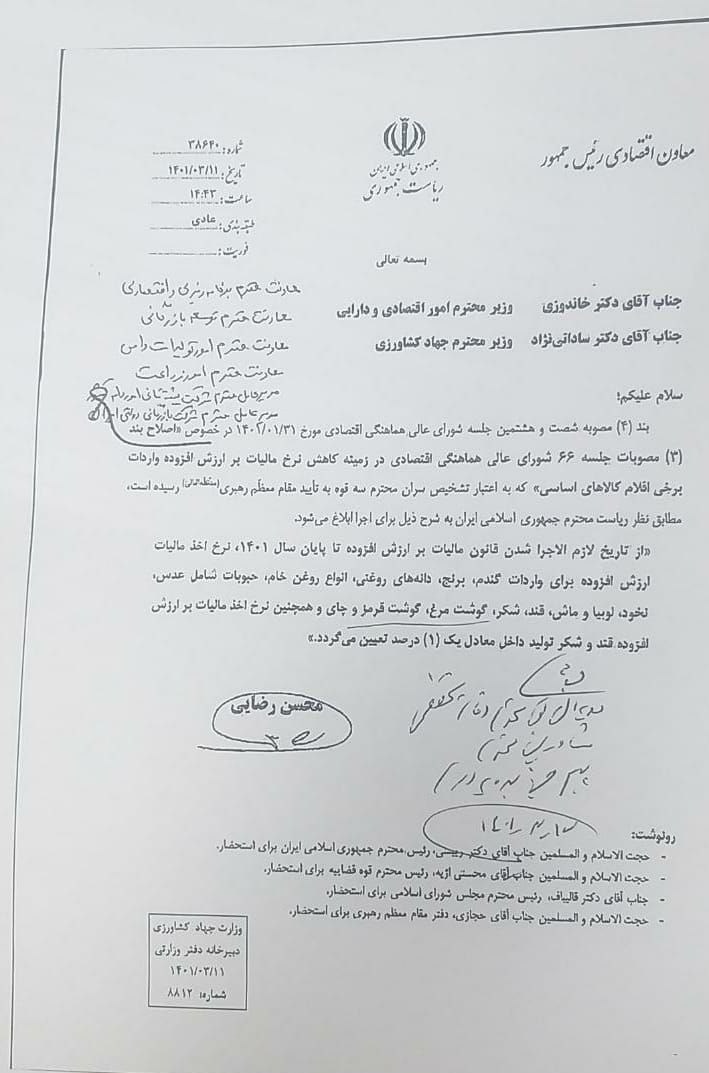 معاون اقتصادی رئیس جمهور
جمهوری اسلامی ایران
ریاست جمهوری
شماره: ۳۸۶۴۰
تاریخ: ۱۴۰۱/۰۳/۱۱
ساعت: ۱۴:۴۳
طبقه بندی: عادی
فوریت:
بسمه تعالی
جناب آقای دکتر خاندوزی وزیر محترم امور اقتصادی و دارایی
جناب آقای دکتر ساداتی‌نژاد وزیر محترم جهاد کشاورزی
معاونت محترم برنامه ریزی و اقتصادی
معاونت محترم توسعه بازرگانی
معاونت محترم امور تولیدات دامی
معاونت محترم امور زراعت
مدیرعامل محترم شرکت پشتیبانی امور دام کشور
مدیرعامل محترم شرکت بازرگانی دولتی ایران
سلام علیکم؛
بند (۴) مصوبه شصت و هشتمین جلسه شورای عالی هماهنگی اقتصادی مورخ ۱۴۰۲/۰۱/۳۱ در خصوص «اصلاح بند
(۳) مصوبات جلسه ۶۶ شورای عالی هماهنگی اقتصادی در زمینه کاهش نرخ مالیات بر ارزش افزوده واردات
برخی اقلام کالاهای اساسی» که به اعتبار تشخیص سران محترم سه قوه به تأیید مقام معظم رهبری (مدظله‌العالی) رسیده است،
مطابق نظر ریاست محترم جمهوری اسلامی ایران به شرح ذیل برای اجرا ابلاغ می‌شود.
«از تاریخ لازم الاجرا شدن قانون مالیات بر ارزش افزوده تا پایان سال ۱۴۰۱، نرخ اخذ مالیات
ارزش افزوده برای واردات گندم، برنج، دانه‌های روغنی، انواع روغن خام، حبوبات شامل عدس،
نخود، لوبیا و ماش، قند، شکر، گوشت مرغ، گوشت قرمز و چای و همچنین نرخ اخذ مالیات بر ارزش
افزوده قند و شکر تولید داخل معادل یک (۱) درصد تعیین می‌گردد.»
محسن رضایی
رونوشت:
- حجت الاسلام و المسلمین جناب آقای دکتر رییسی، رئیس محترم جمهوری اسلامی ایران برای استحضار.
- حجت الاسلام و المسلمین جناب آقای محسنی اژیه، رئیس محترم قوه قضاییه برای استحضار.
- جناب آقای دکتر قالیباف، رئیس محترم مجلس شورای اسلامی برای استحضار.
- حجت الاسلام و المسلمین جناب آقای حجازی، دفتر مقام معظم رهبری برای استحضار.
وزارت جهاد کشاورزی
دبیرخانه دفتر وزارتی
۱۴۰۱/۰۳/۱۱
شماره: ۸۸۱۲